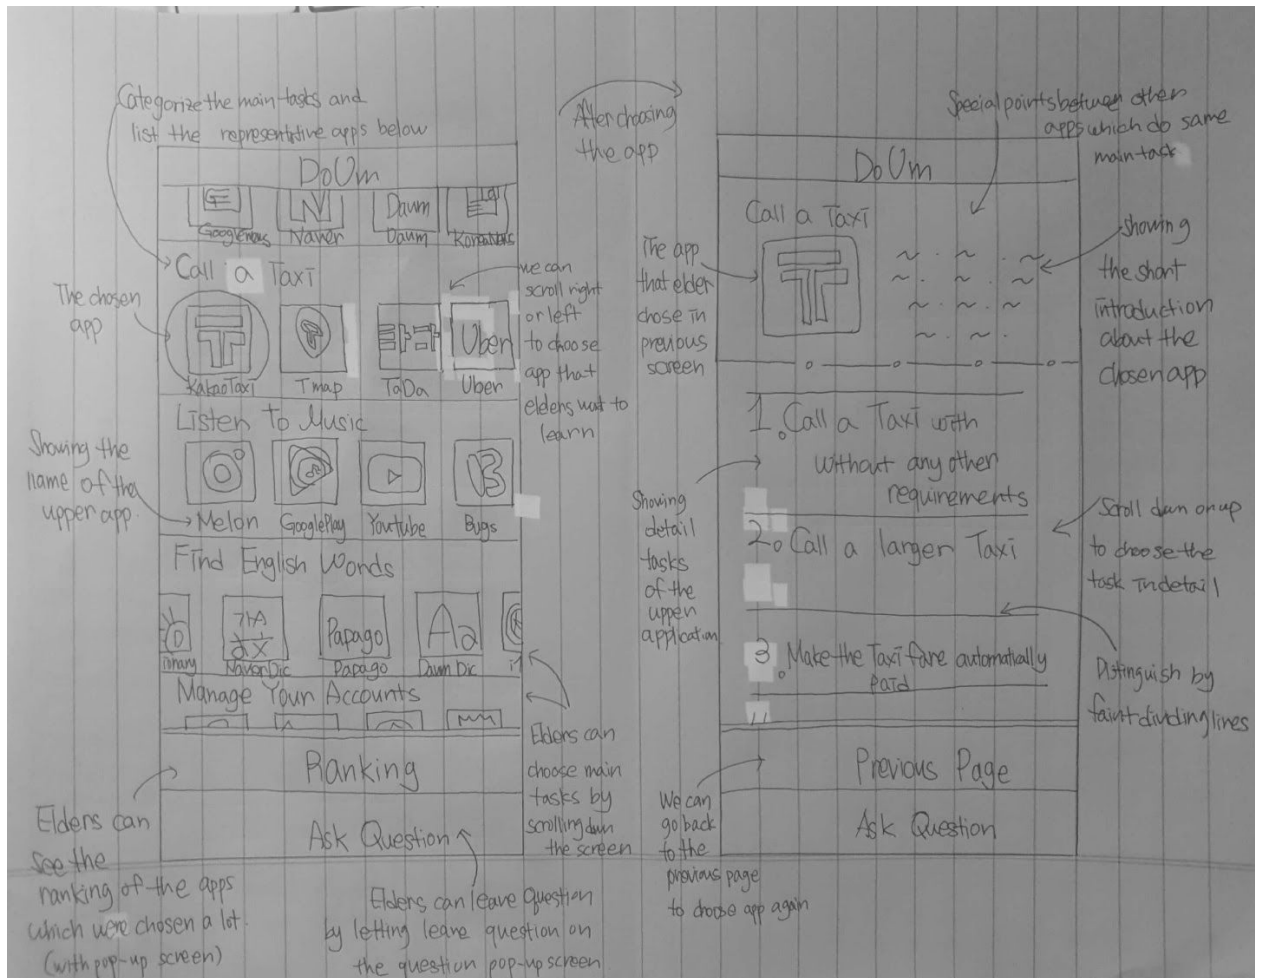 Categorize the main tasks and
list the representitive apps below
DoUm
Googlenews Naver Daum Daum KoreaNews
Call a Taxi
The chosen
app
KakaoTaxi Tmap TaDa Uber Uber
we can
scroll right
or left
to choose
app that
elders wat to
learn
Listen to Music
Showing the
name of the
upper app.
Melon GooglePlay Youtube Bugs
Find English Words
Papago
Aa
NaverDic Papago Daum Dic
Manage Your Accounts
Elders can
choose main
tasks by
scrolling down
the screen
Ranking
Elders can
see the
ranking of the apps
which were chosen a lot.
(with pop-up screen)
Ask Question
Elders can leave question
by letting leave question on
the question pop-up screen
After choosing
the app
Special points between other
apps which do same
main task
DoUm
Call a Taxi
The app
that elder
chose in
previous
screen
showing
the short
introduction
about the
chosen app
1. Call a Taxi with
without any other
requirements
Showing
detail
tasks
of the
upper
application
2. Call a larger Taxi
Scroll down or up
to choose the
task in detail
3. Make the Taxi fare automatically
paid
Distinguish by
faint dividing lines
Previous Page
We can
go back
to the
previous page
to choose app again
Ask Question